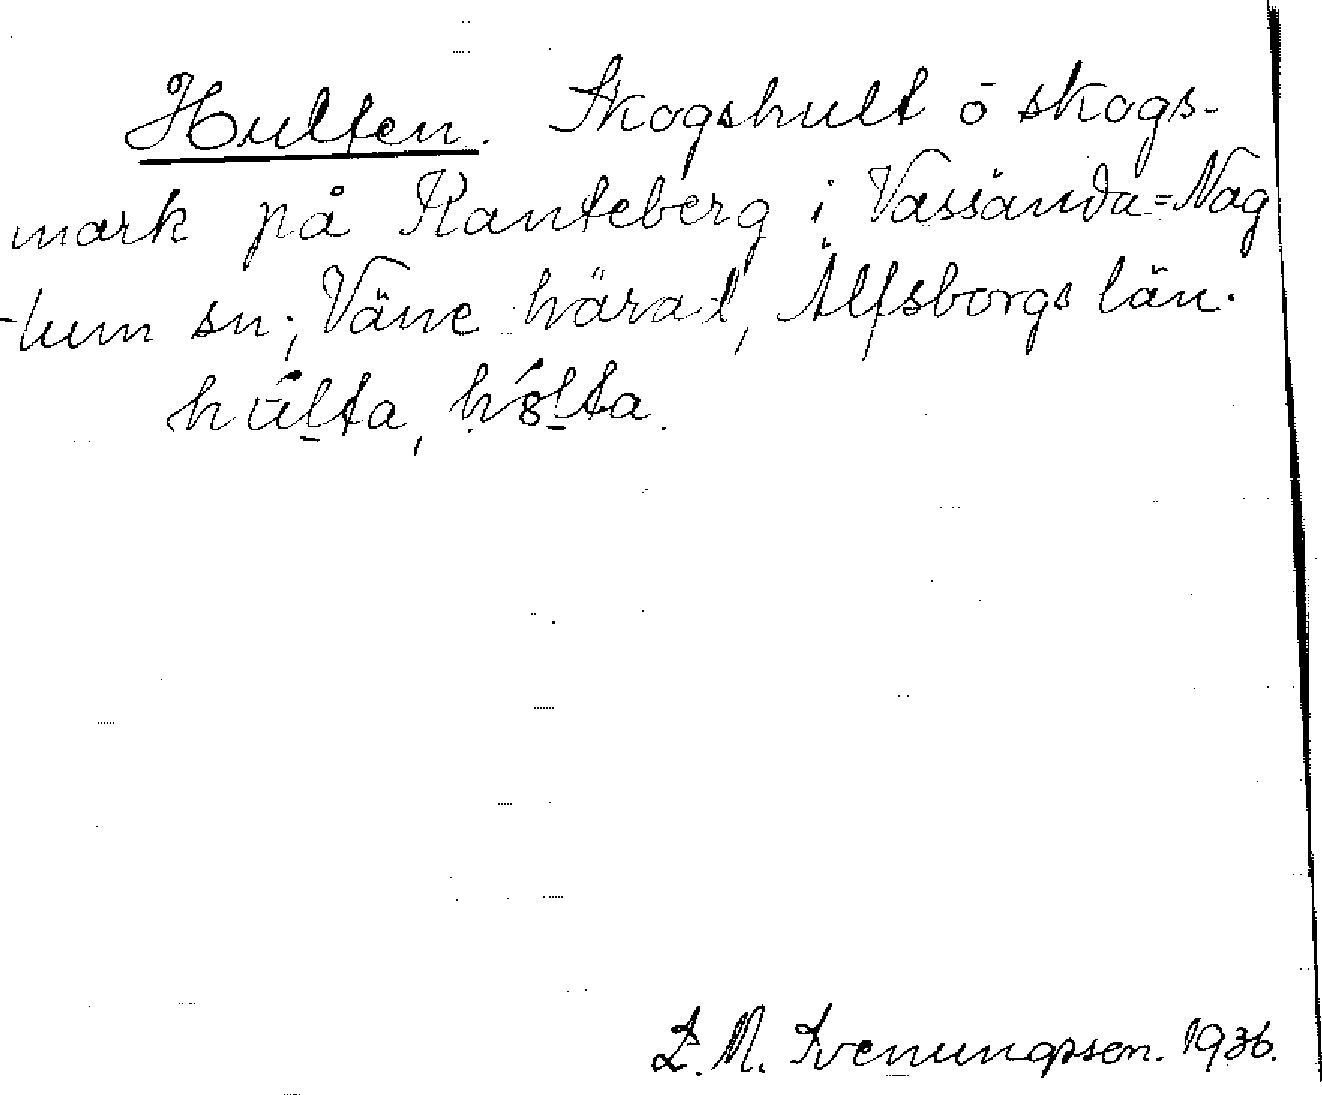 Hulten. Skogshult o skogs-
mark på Ranteberg i Vassända-Nag
-lum sn., Väne härad, Älfsborgs län.
húlta, hólta.
L. M. Svenungsson. 1936.